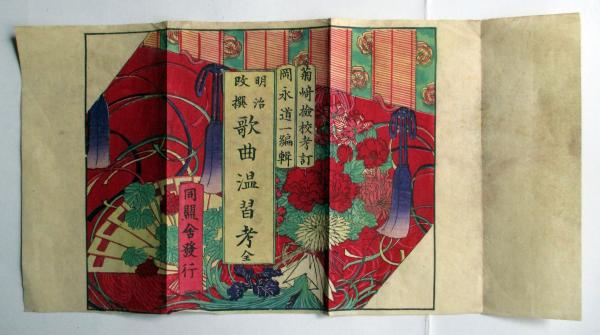 菊崎撿校考訂
岡永道一編輯
明治
改撰
歌曲温習考 全
同關舎發行